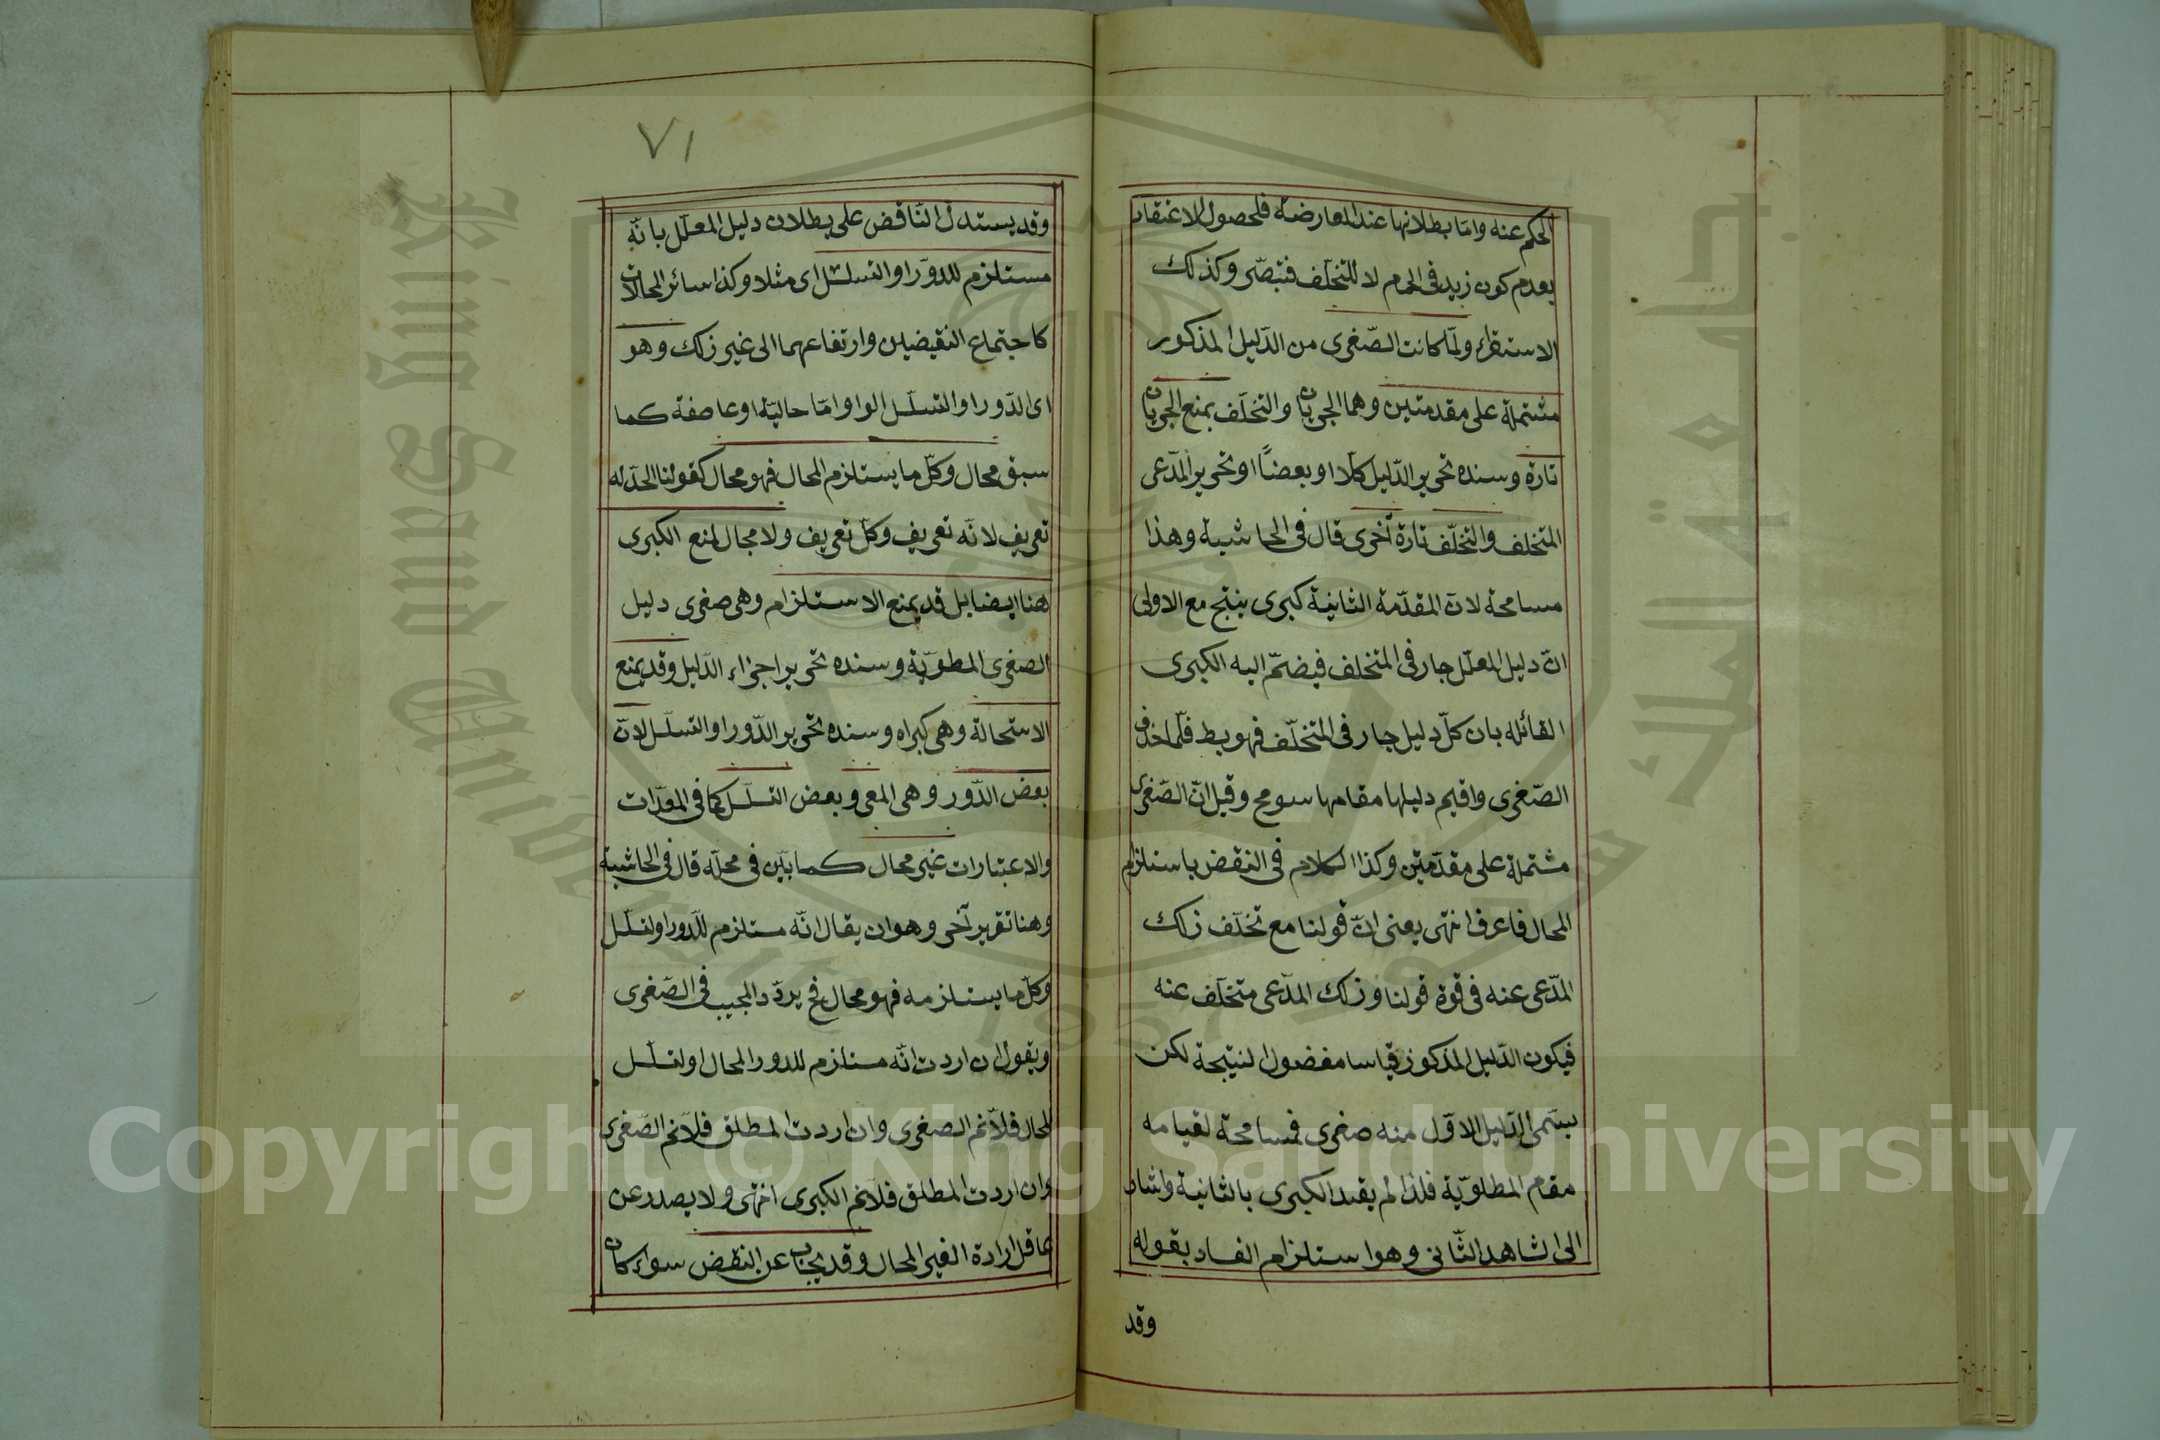 الحكم عنه واما بطلانها عند المعارضة فلحصول الاعتقاد
بعدم كون زيد فى الحمام لا للتخلف فتبصّر وكذلك
الاستقراء ولما كانت الصّغرى من الدّليل المذكور
مشتملة على مقدمتين وهما الجريان والتخلّف بمنع الجريان
تارة وسنده تحرير الدّليل كلّا او بعضًا او تحرير المدّعى
المتخلف والتخلّف تارة أخرى قال فى الحاشية وهذا
مسامحة لان المقدّمة الثانية كبرى ينتج مع الاولى
انّ دليل المعلّل جار فى المتخلف فيضمّ اليه الكبرى
القائله بان كلّ دليل جار فى المتخلّف فهو بط فلمّا حذف
الصّغرى واقيم دليلها مقامها سومح وقيل انّ الصّغرى
مشتملة على مقدّمتين وكذا الكلام فى النقض باستلزام
المحال فاعرف انتهى يعنى انّ قولنا مع تخلّف ذلك
المدّعى عنه فى قوة قولنا وذلك المدّعى متخلّف عنه
فيكون الدّليل المذكور قياسا مفصول النتيجة لكن
يسمى الدّليل الاوّل منه صغرى فمسامحة لقيامه
مقام المطلوبّة فلذا لم يقيد الكبرى بالثانية واشار
الى الشاهد الثّانى وهو استلزام الفساد بقوله
وقد
٧١
وقد يستدلّ النّاقض على بطلان دليل المعلّل بانّه
مستلزم للدّور او التسلسل اى مثلا وكذا سائر المحالات
كاجتماع النقيضين وارتفاعهما الى غير ذلك وهو
اى الدّور او التسلّسل الواو امّا حاليّة او عاطفة كما
سبق محال وكلّ ما يستلزم المحال فهو محال كقولنا الحدّ له
تعريف لانّه تعريف وكلّ تعريف ولا مجال لمنع الكبرى
هنا ايضا بل قد يمنع الاستلزام وهى صغرى دليل
الصغرى المطويّة وسنده تحرير اجزاء الدّليل وقد يمنع
الاستحالة وهى كبراه وسنده تحرير الدّور او التسلّسل لانّ
بعض الدّور وهى المعى وبعض التسلّسل كما فى المعدّات
والاعتبارات غير محال كما بيّن فى محلّه قال فى الحاشية
وهنا تقرير آخر وهو ان يقال انّه مستلزم للدّور او لتسلّسل
وكلّ ما يستلزمه فهو محال فح يردّد المجيب فى الصّغرى
ويقول ان اردت انّه مستلزم للدور المحال او لتسلّسل
المحال فلا نم الصغرى وان اردت المطلق فلا نم الصّغرى
وان اردت المطلق فلا نم الكبرى انتهى ولا يصدر عن
عاقل ارادة الغير المحال وقد يجاب عن النقض سواء كان
Copyright © King Saud University